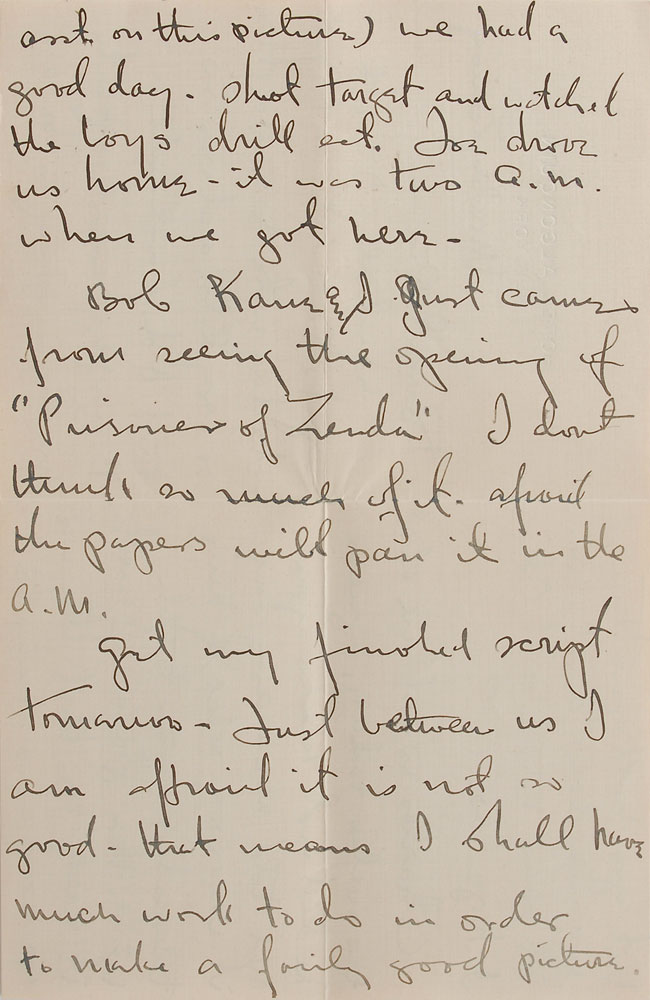 asst. on this picture) we had a
good day. shot target and watched
the boys drill ect. Joe drove
us home - it was two A.M.
when we got here -
Bob Kane & I just came
from seeing the opening of
"Prisoner of Zenda" I dont
think so much of it. afraid
the papers will pan it in the
A.M.
get my finished script
tomorrow - Just between us I
am afraid it is not so
good - that means I shall have
much work to do in order
to make a fairly good picture.